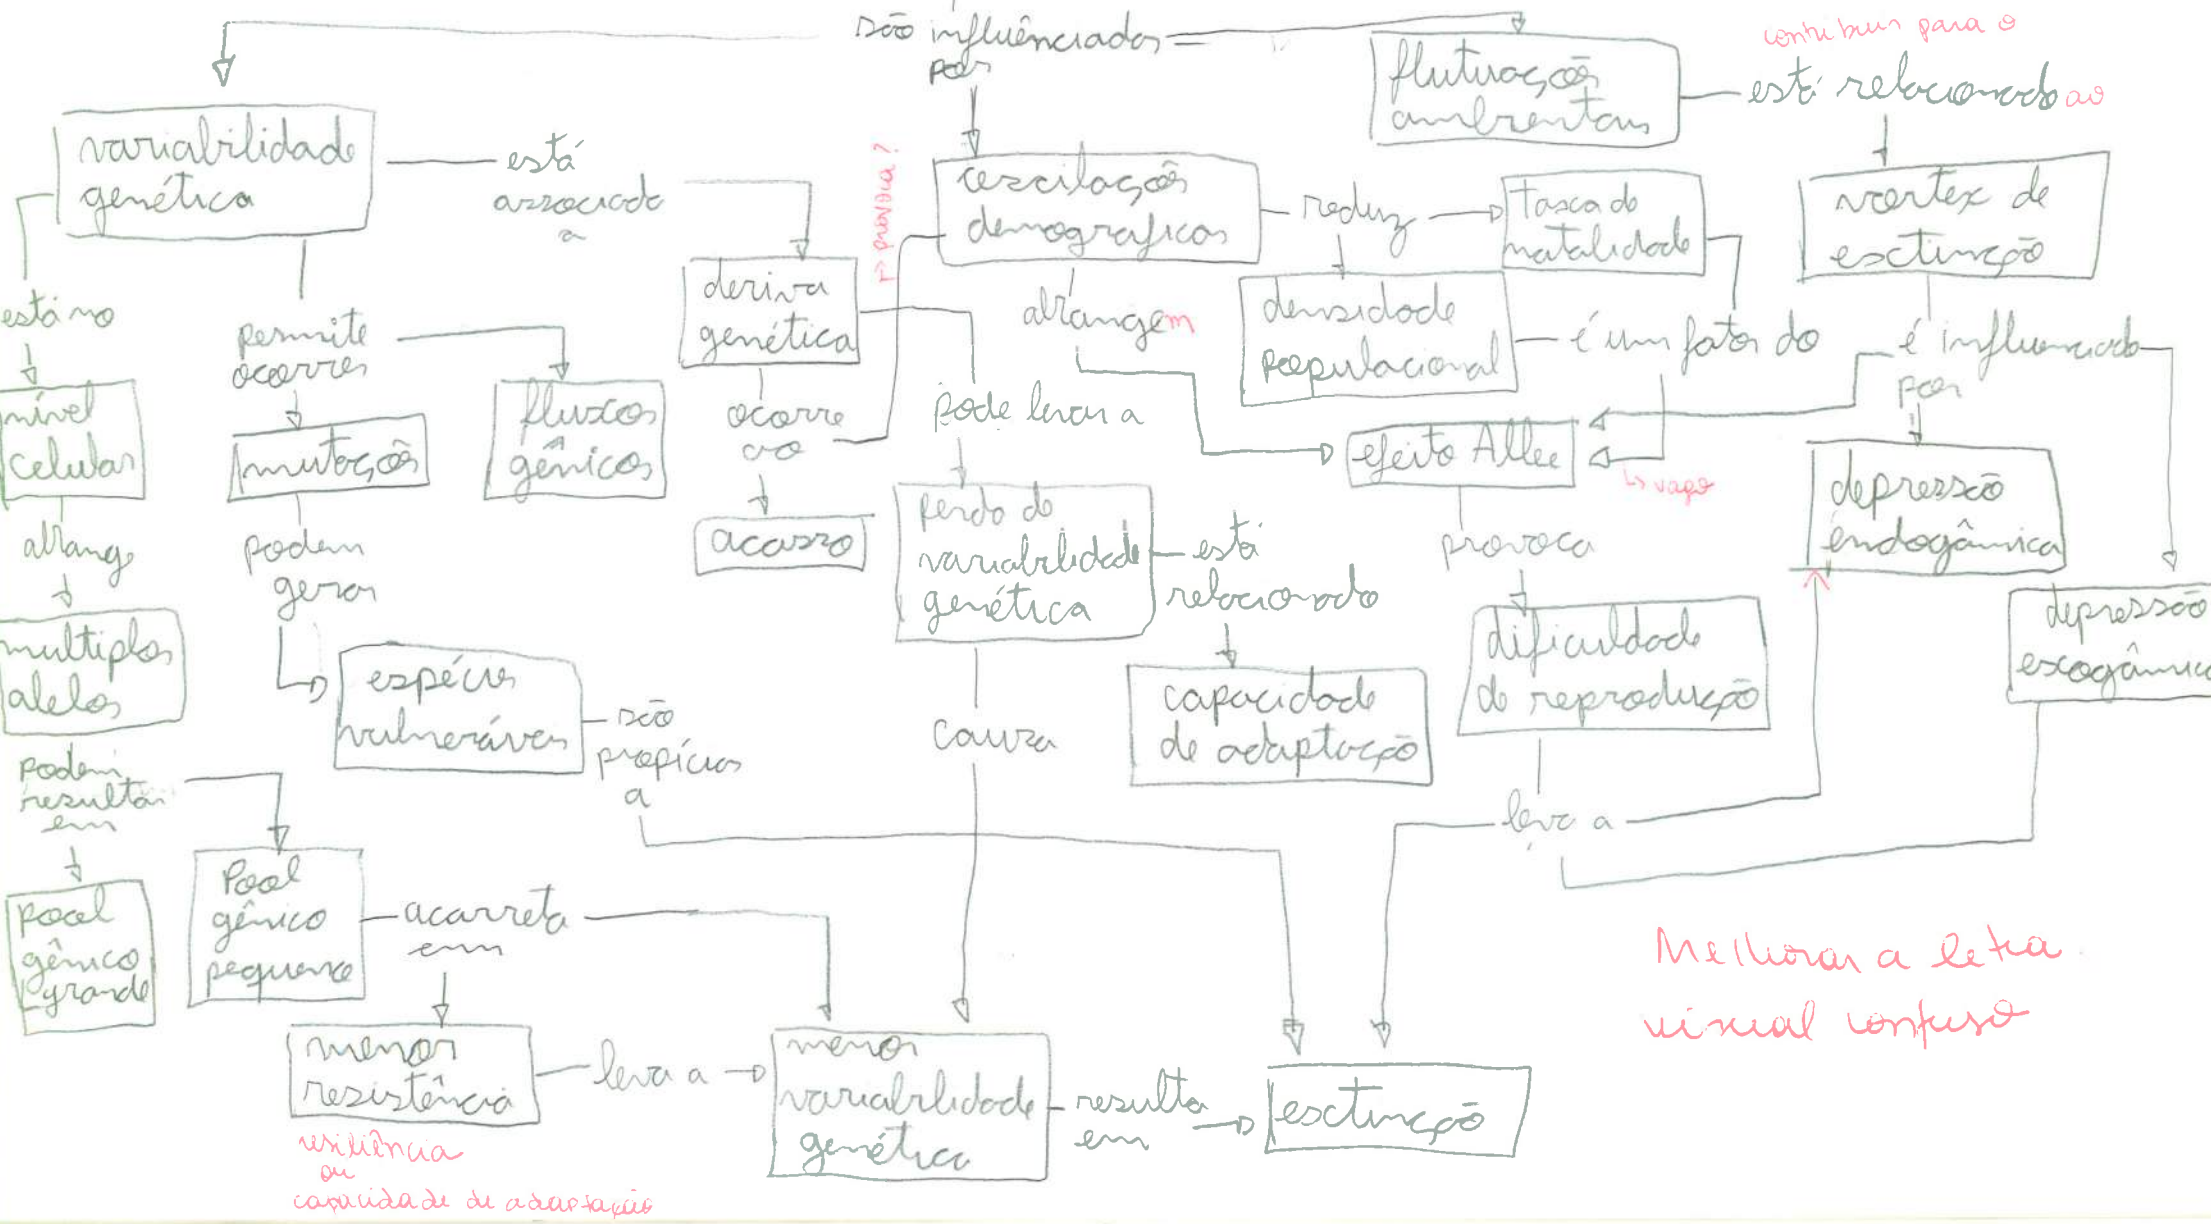 são influênciados
por
contribuem para o
flutuações
ambientais
está relacionado ao
variabilidade
genética
está
associada
a
→ provoca?
oscilações
demograficas
reduz
taxa de
natalidade
vortex de
extinção
deriva
genética
abrangem
densidade
populacional
é um fator do
é influenciado
por
está no
permite
ocorrer
nível
celular
mutações
fluxos
gênicos
ocorre
ao
pode levar a
efeito Allee
↳ vago
depressão
endogâmica
abrange
podem
gerar
acasso
perda de
variabilidade
genética
está
relacionado
provoca
depressão
exogâmica
multiplos
alelos
espécies
vulneráveis
são
propícias
a
causa
capacidade
de adaptação
dificuldade
de reprodução
podem
resultar
em
leva a
pool
gênico
grande
Pool
gênico
pequeno
acarreta
em
Melhorar a letra
visual confuso
menor
resistência
leva a
menor
variabilidade
genética
resulta
em
extinção
resiliência
ou
capacidade de adaptação